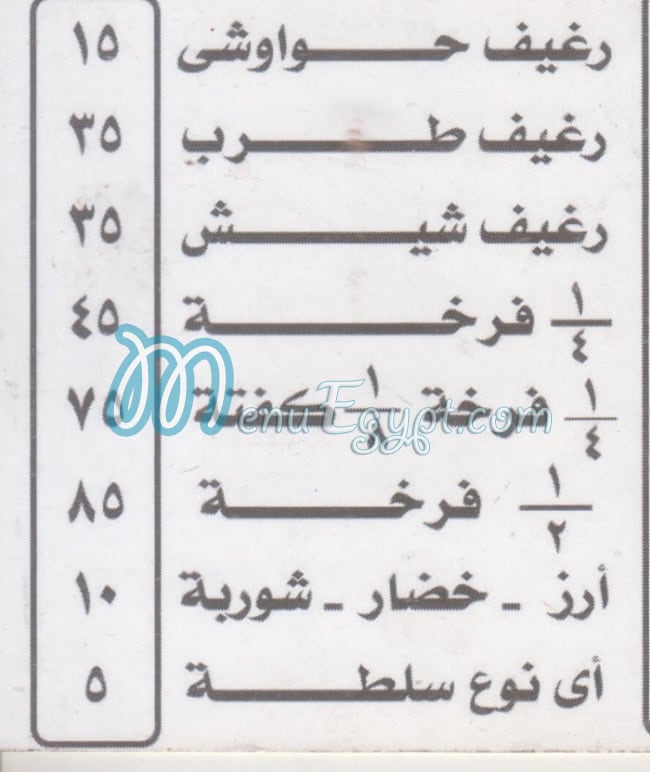 رغيف حواوشى ١٥
رغيف طرب ٣٥
رغيف شيش ٣٥
١/٤ فرخة ٤٥
١/٤ فرخة ١/٨ كفتة ٧٥
١/٢ فرخة ٨٥
أرز - خضار - شوربة ١٠
أى نوع سلطة ٥
MenuEgypt.com